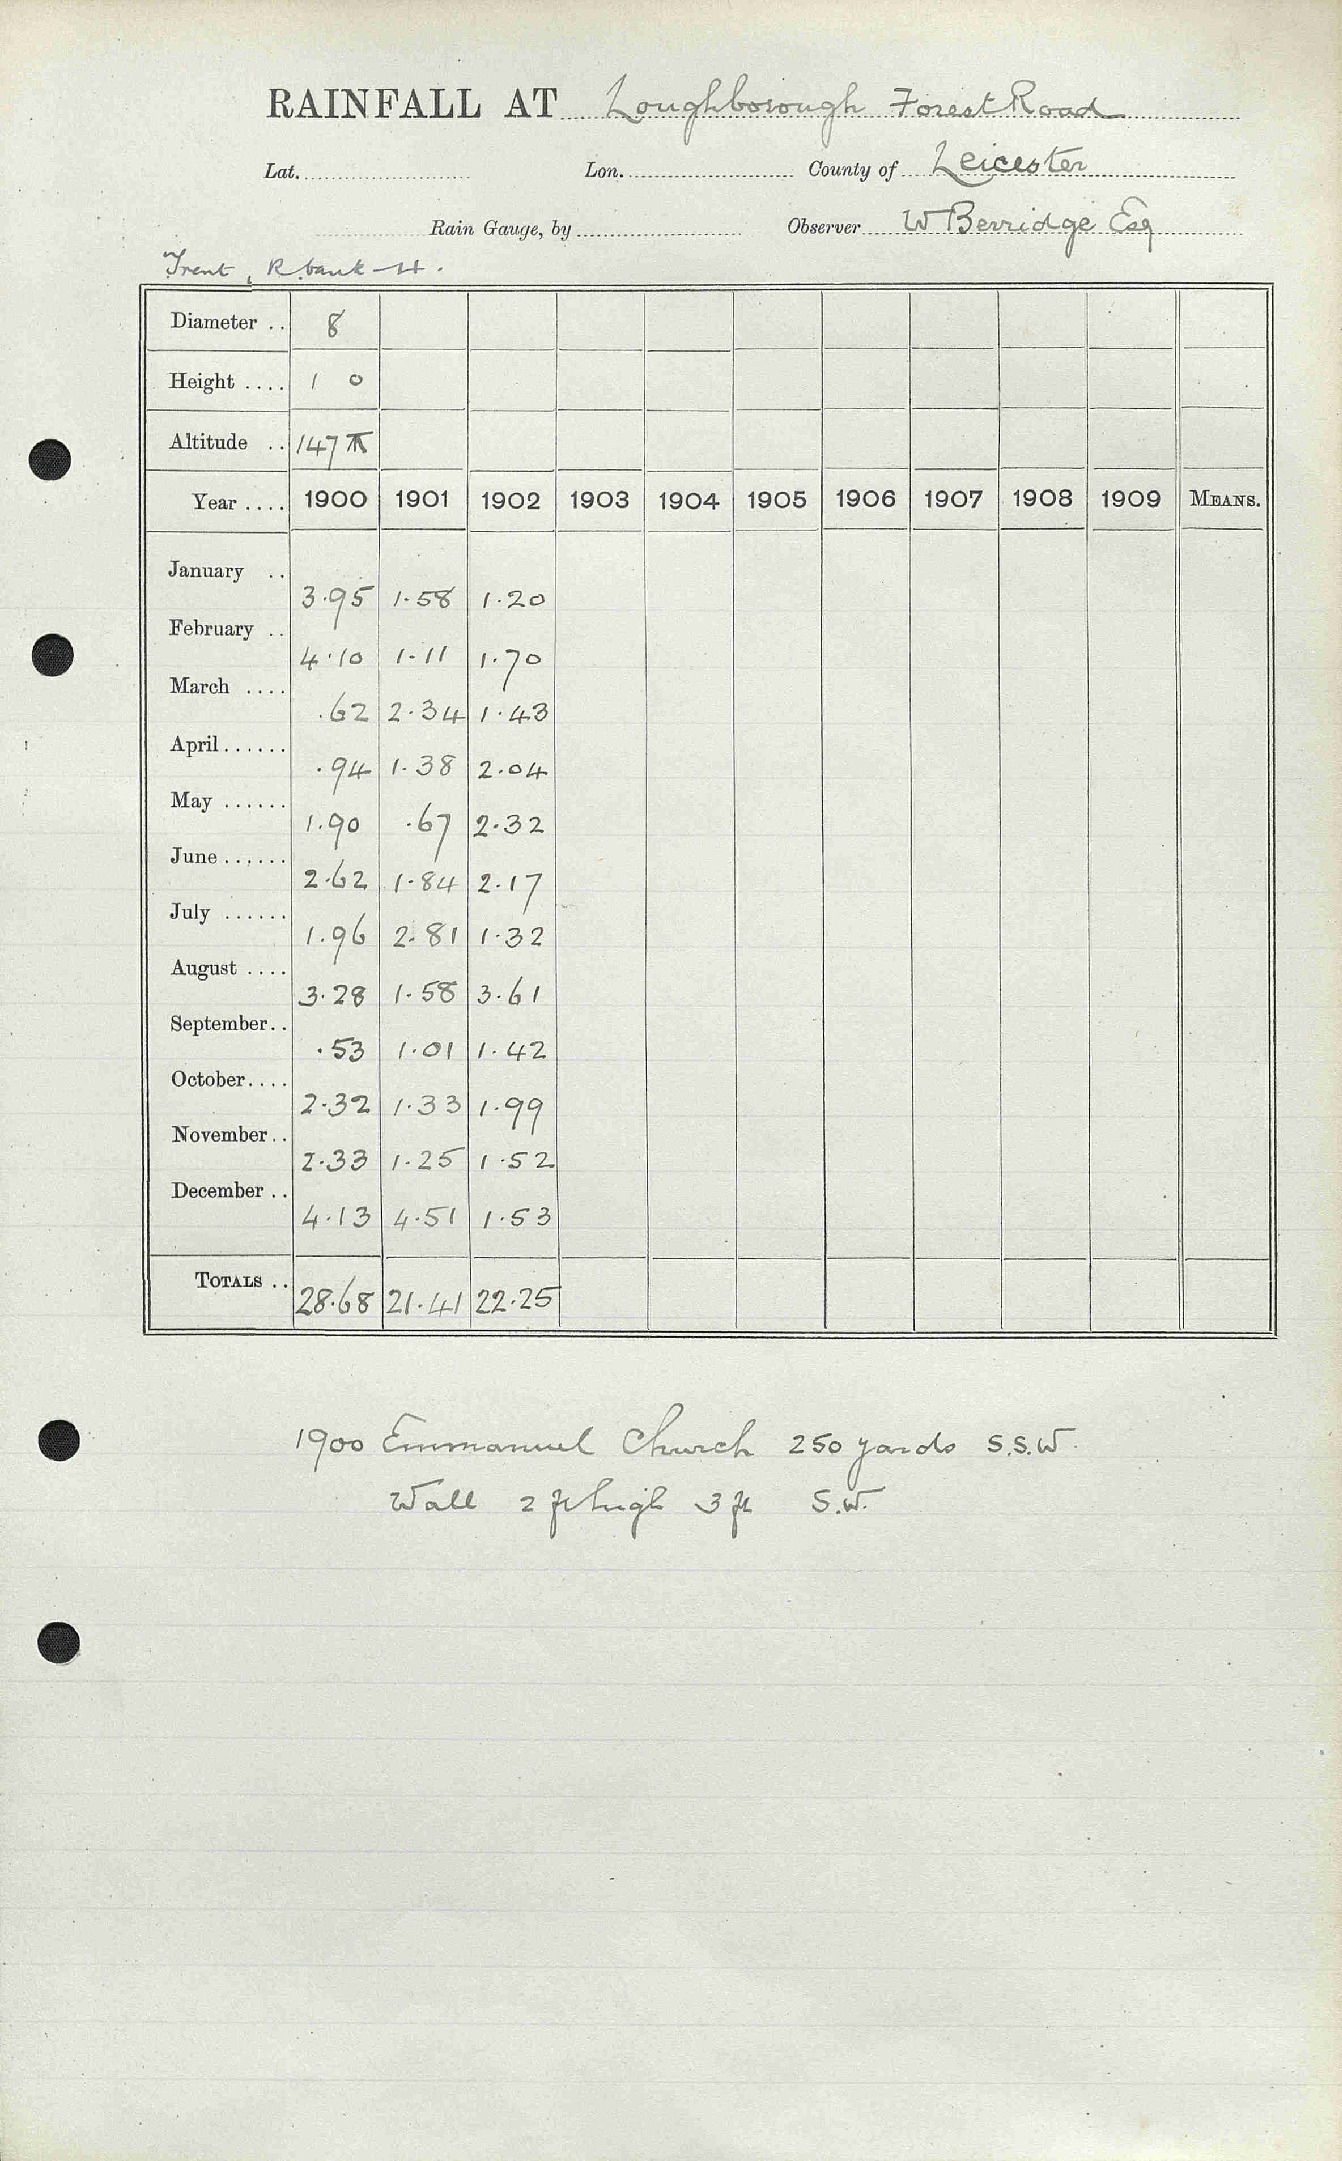 RAINFALL AT Loughborough Forest Road
Lat. Lon. County of Leicester
Rain Gauge, by Observer W Berridge Esq
Trent, R bank
Diameter .. 8
Height .... 1 0
Altitude .. 147
Year .... 1900 1901 1902 1903 1904 1905 1906 1907 1908 1909 MEANS.
January .. 3.95 1.58 1.20
February .. 4.10 1.11 1.70
March .... .62 2.34 1.43
April...... .94 1.38 2.04
May ...... 1.90 .67 2.32
June...... 2.62 1.84 2.17
July ...... 1.96 2.81 1.32
August .... 3.28 1.58 3.61
September.. .53 1.01 1.42
October.... 2.32 1.33 1.99
November.. 2.33 1.25 1.52
December .. 4.13 4.51 1.53
TOTALS .. 28.68 21.41 22.25
1900 Emmanuel Church 250 yards S.S.W.
Wall 2 ft high 3 ft S.W.